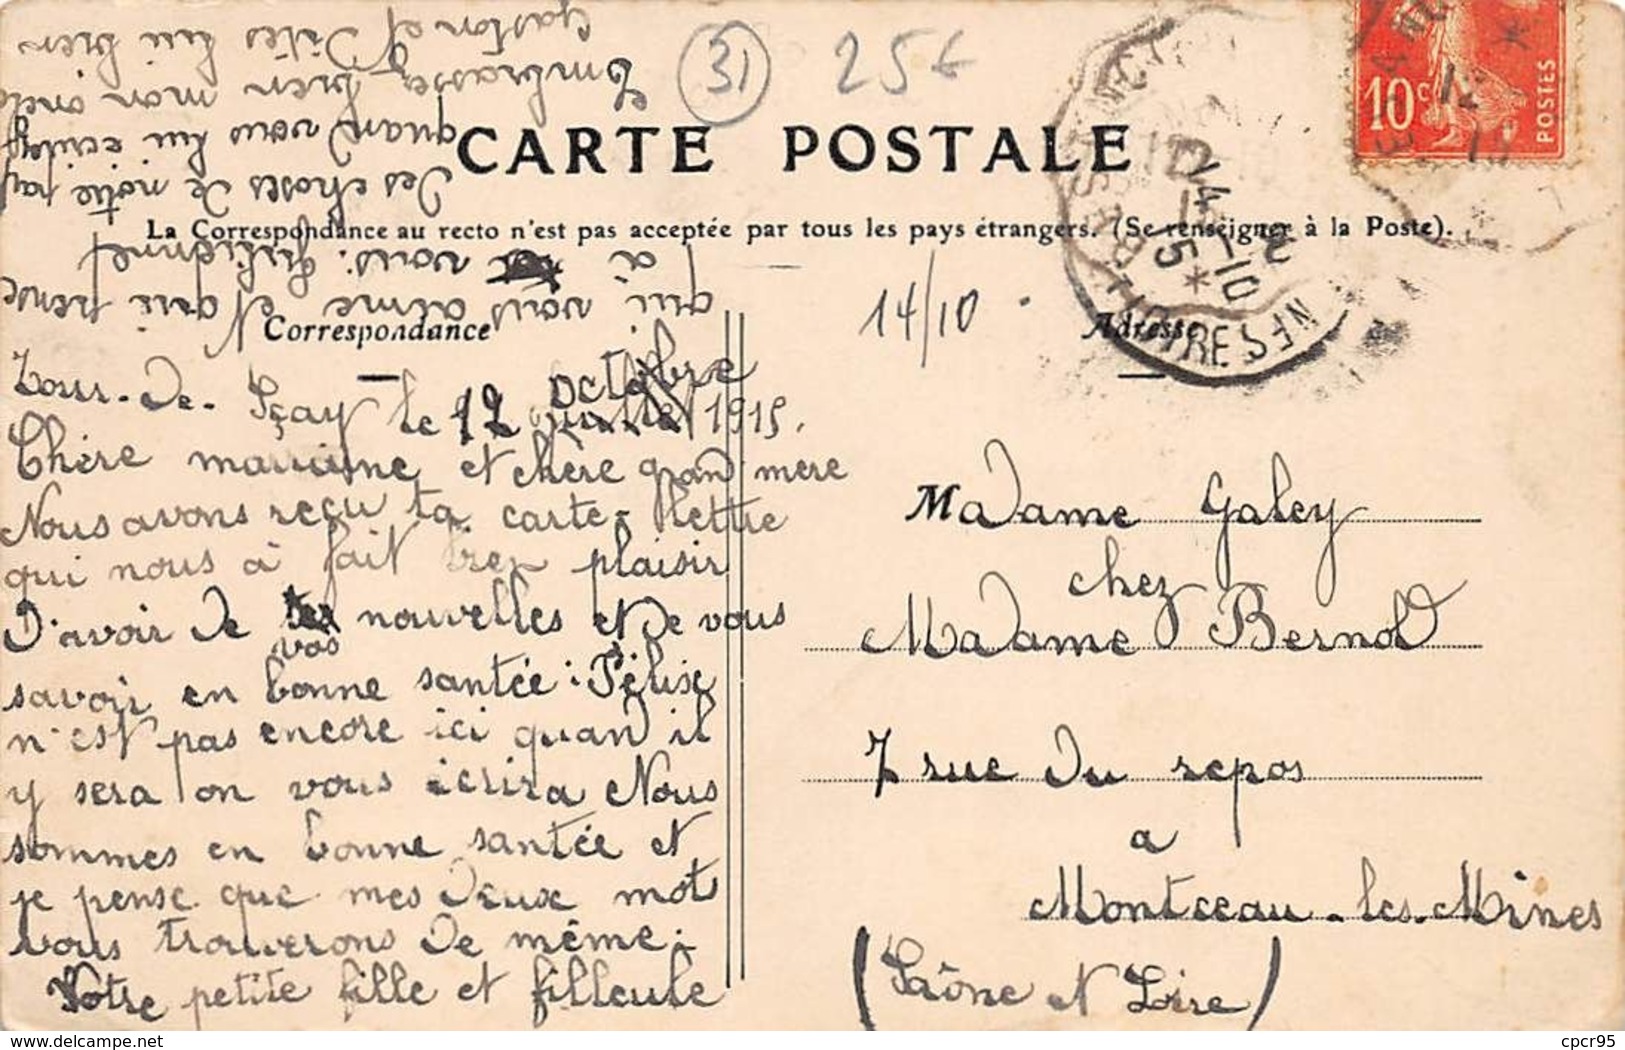 31
25€
CARTE POSTALE
La Correspondance au recto n'est pas acceptée par tous les pays étrangers. (Se renseigner à la Poste).
Correspondance
Tour-de-Sçay le 12 Octobre 1915.
Chère marraine et chère grand mère
Nous avons reçu ta carte-lettre
qui nous à fait bien plaisir
D'avoir de vos nouvelles et de vous
savoir en bonne santée: Félise
n'est pas encore ici quand il
y sera on vous écrira Nous
sommes en bonne santée et
je pense que mes deux mots
vous trouverons de même.
Votre petite fille et filleule
qui vous aime et qui pense
à vous. Julienne
Des choses de notre pay
quand vous lui écrirez
Embrassez bien mon oncle
Gaston et dites lui bien
14/10
Adresse
10c
POSTES
Madame Galey
chez
Madame Bernod
7 rue du repos
a
Montceau-les-Mines
(Saône et Loire)
cpcr95